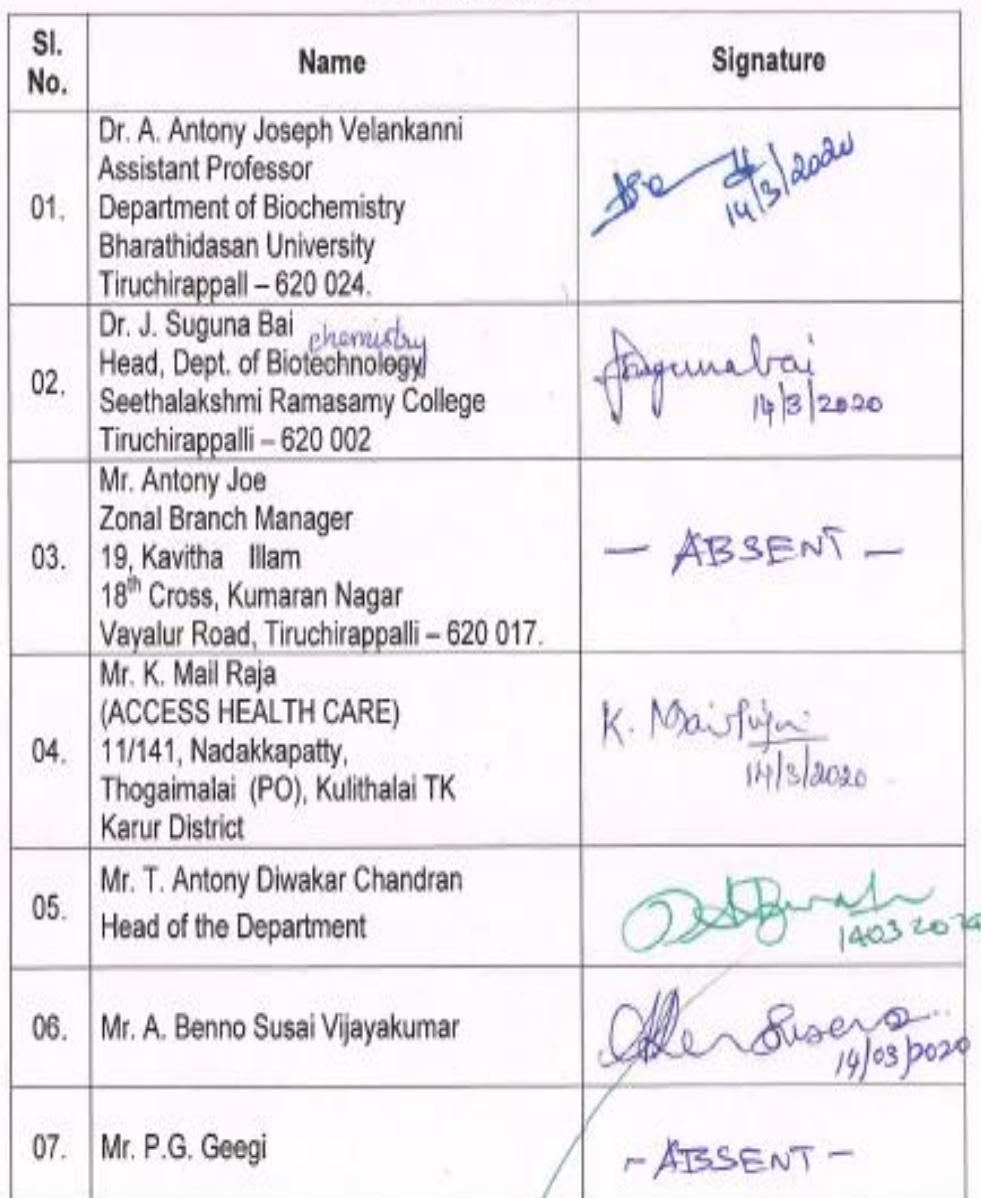 Sl. No.
Name
Signature
01.
Dr. A. Antony Joseph Velankanni
Assistant Professor
Department of Biochemistry
Bharathidasan University
Tiruchirappall – 620 024.
14/3/2020
02.
Dr. J. Suguna Bai
chemistry
Head, Dept. of Biotechnology
Seethalakshmi Ramasamy College
Tiruchirappalli – 620 002
Jsugunabai
14/3/2020
03.
Mr. Antony Joe
Zonal Branch Manager
19, Kavitha Illam
18th Cross, Kumaran Nagar
Vayalur Road, Tiruchirappalli – 620 017.
— ABSENT —
04.
Mr. K. Mail Raja
(ACCESS HEALTH CARE)
11/141, Nadakkapatty,
Thogaimalai (PO), Kulithalai TK
Karur District
K.
14/3/2020
05.
Mr. T. Antony Diwakar Chandran
Head of the Department
06.
Mr. A. Benno Susai Vijayakumar
14/03/2020
07.
Mr. P.G. Geegi
- ABSENT -